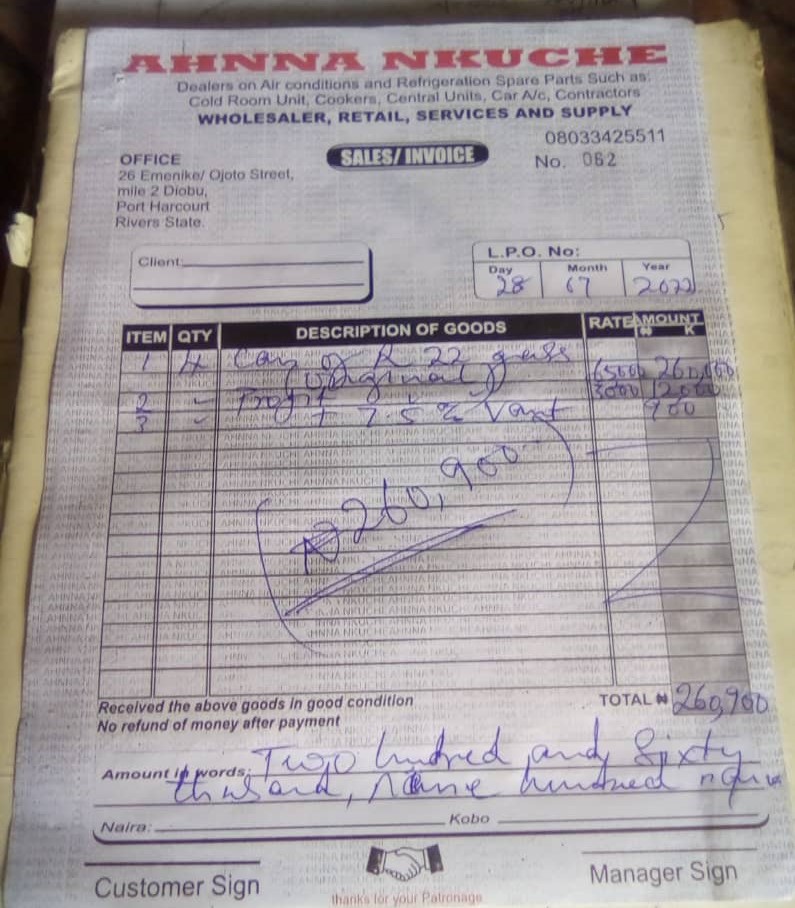 AHNNA NKUCHE
Dealers on Air conditions and Refrigeration Spare Parts Such as:
Cold Room Unit, Cookers, Central Units, Car A/c, Contractors
WHOLESALER, RETAIL, SERVICES AND SUPPLY
08033425511
SALES/INVOICE
No. 062
OFFICE
26 Emenike/ Ojoto Street,
mile 2 Diobu,
Port Harcourt
Rivers State.
Client:
L.P.O. No:
Day Month Year
28 07 2022
ITEM QTY DESCRIPTION OF GOODS RATE AMOUNT
₦ K
1 4 Can of R 22 gass 65000 260,000
(Original) 3000 12000
2 Profit
3 + 7.5% Vant 900
₦260,900
Received the above goods in good condition
No refund of money after payment
TOTAL ₦ 260,900
Amount in words: Two hundred and Sixty
thusand, nine hundred
Naira: Kobo
Customer Sign
Manager Sign
thanks for your Patronage